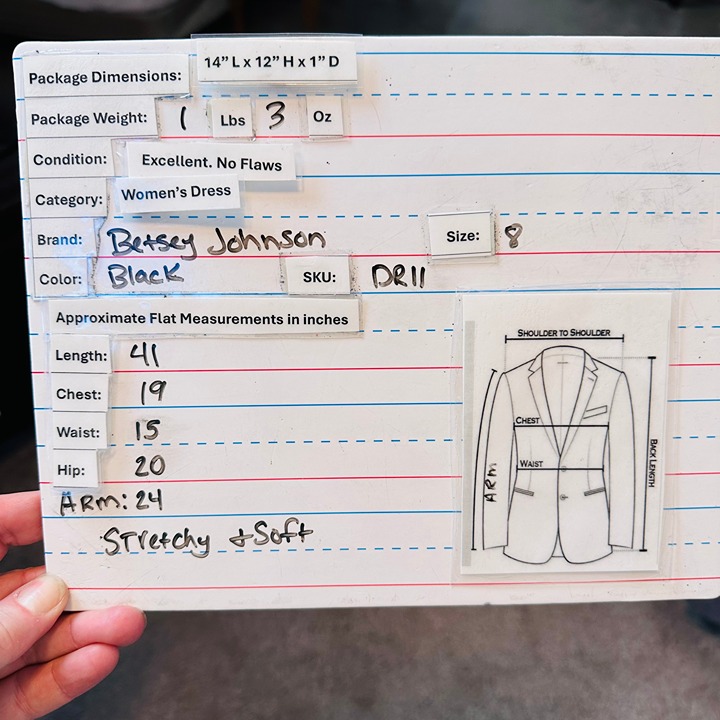 Package Dimensions: 14" L x 12" H x 1" D
Package Weight: 1 Lbs 3 Oz
Condition: Excellent. No Flaws
Category: Women's Dress
Brand: Betsey Johnson Size: 8
Color: Black SKU: DR11
Approximate Flat Measurements in inches
Length: 41
Chest: 19
Waist: 15
Hip: 20
ARM: 24
Stretchy + Soft
SHOULDER TO SHOULDER
CHEST
WAIST
ARM
BACK LENGTH